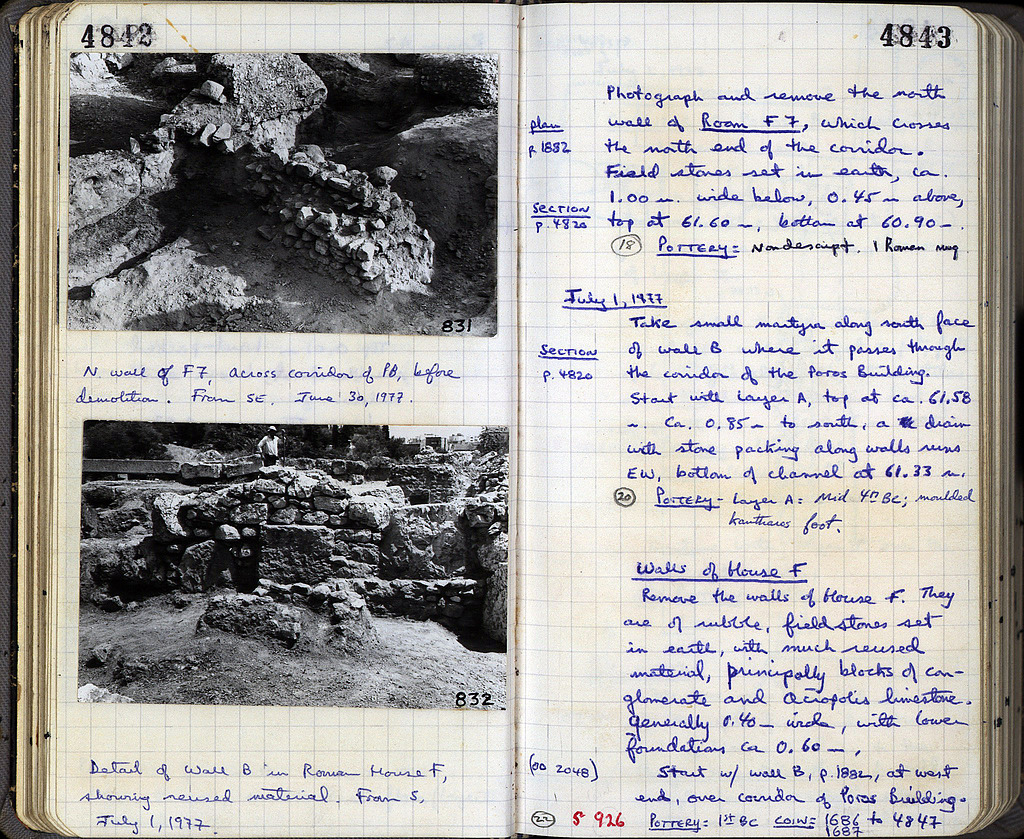 4842
831
N. wall of F7, across corridor of PB, before
demolition. From SE. June 30, 1977.
832
Detail of Wall B in Roman House F,
showing reused material. From S,
July 1, 1977.
4843
Photograph and remove the north
plan
wall of Room F7, which crosses
p 1882
the north end of the corridor.
Field stones set in earth, ca.
1.00 m. wide below, 0.45 m above,
SECTION
p. 4820
top at 61.60 m, bottom at 60.90 m.
18 POTTERY = Nondescript. 1 Roman mug
July 1, 1977
Take small martyra along south face
SECTION
of wall B where it passes through
p. 4820
the corridor of the Poros Building.
Start with Layer A, top at ca. 61.58
m. Ca. 0.85 m to south, a drain
with stone packing along walls runs
EW, bottom of channel at 61.33 m.
20 POTTERY - Layer A = Mid 4th BC; moulded
kantharos foot.
Walls of House F
Remove the walls of House F. They
are of rubble, field stones set
in earth, with much reused
material, principally blocks of con-
glomerate and Acropolis limestone.
Generally 0.40 m wide, with lower
foundations ca 0.60 m.
(ΟΩ 2048)
Start w/ wall B, p. 1882, at west
end, over corridor of Poros Building.
22 S 926 POTTERY = 1st BC COINS = 1686 to 4847
1687